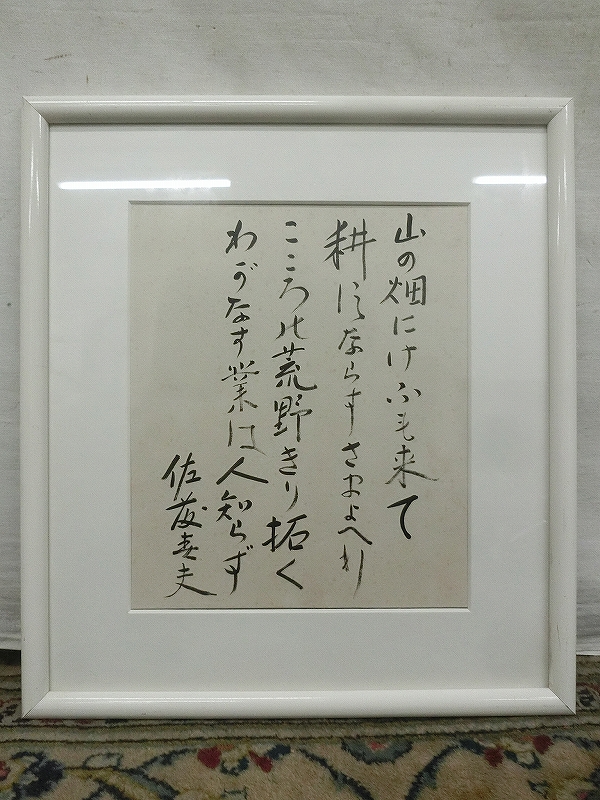 山の畑にけふも来て
耕すならすさまよへり
こころの荒野きり拓く
わがなす業は人知らず
佐藤春夫